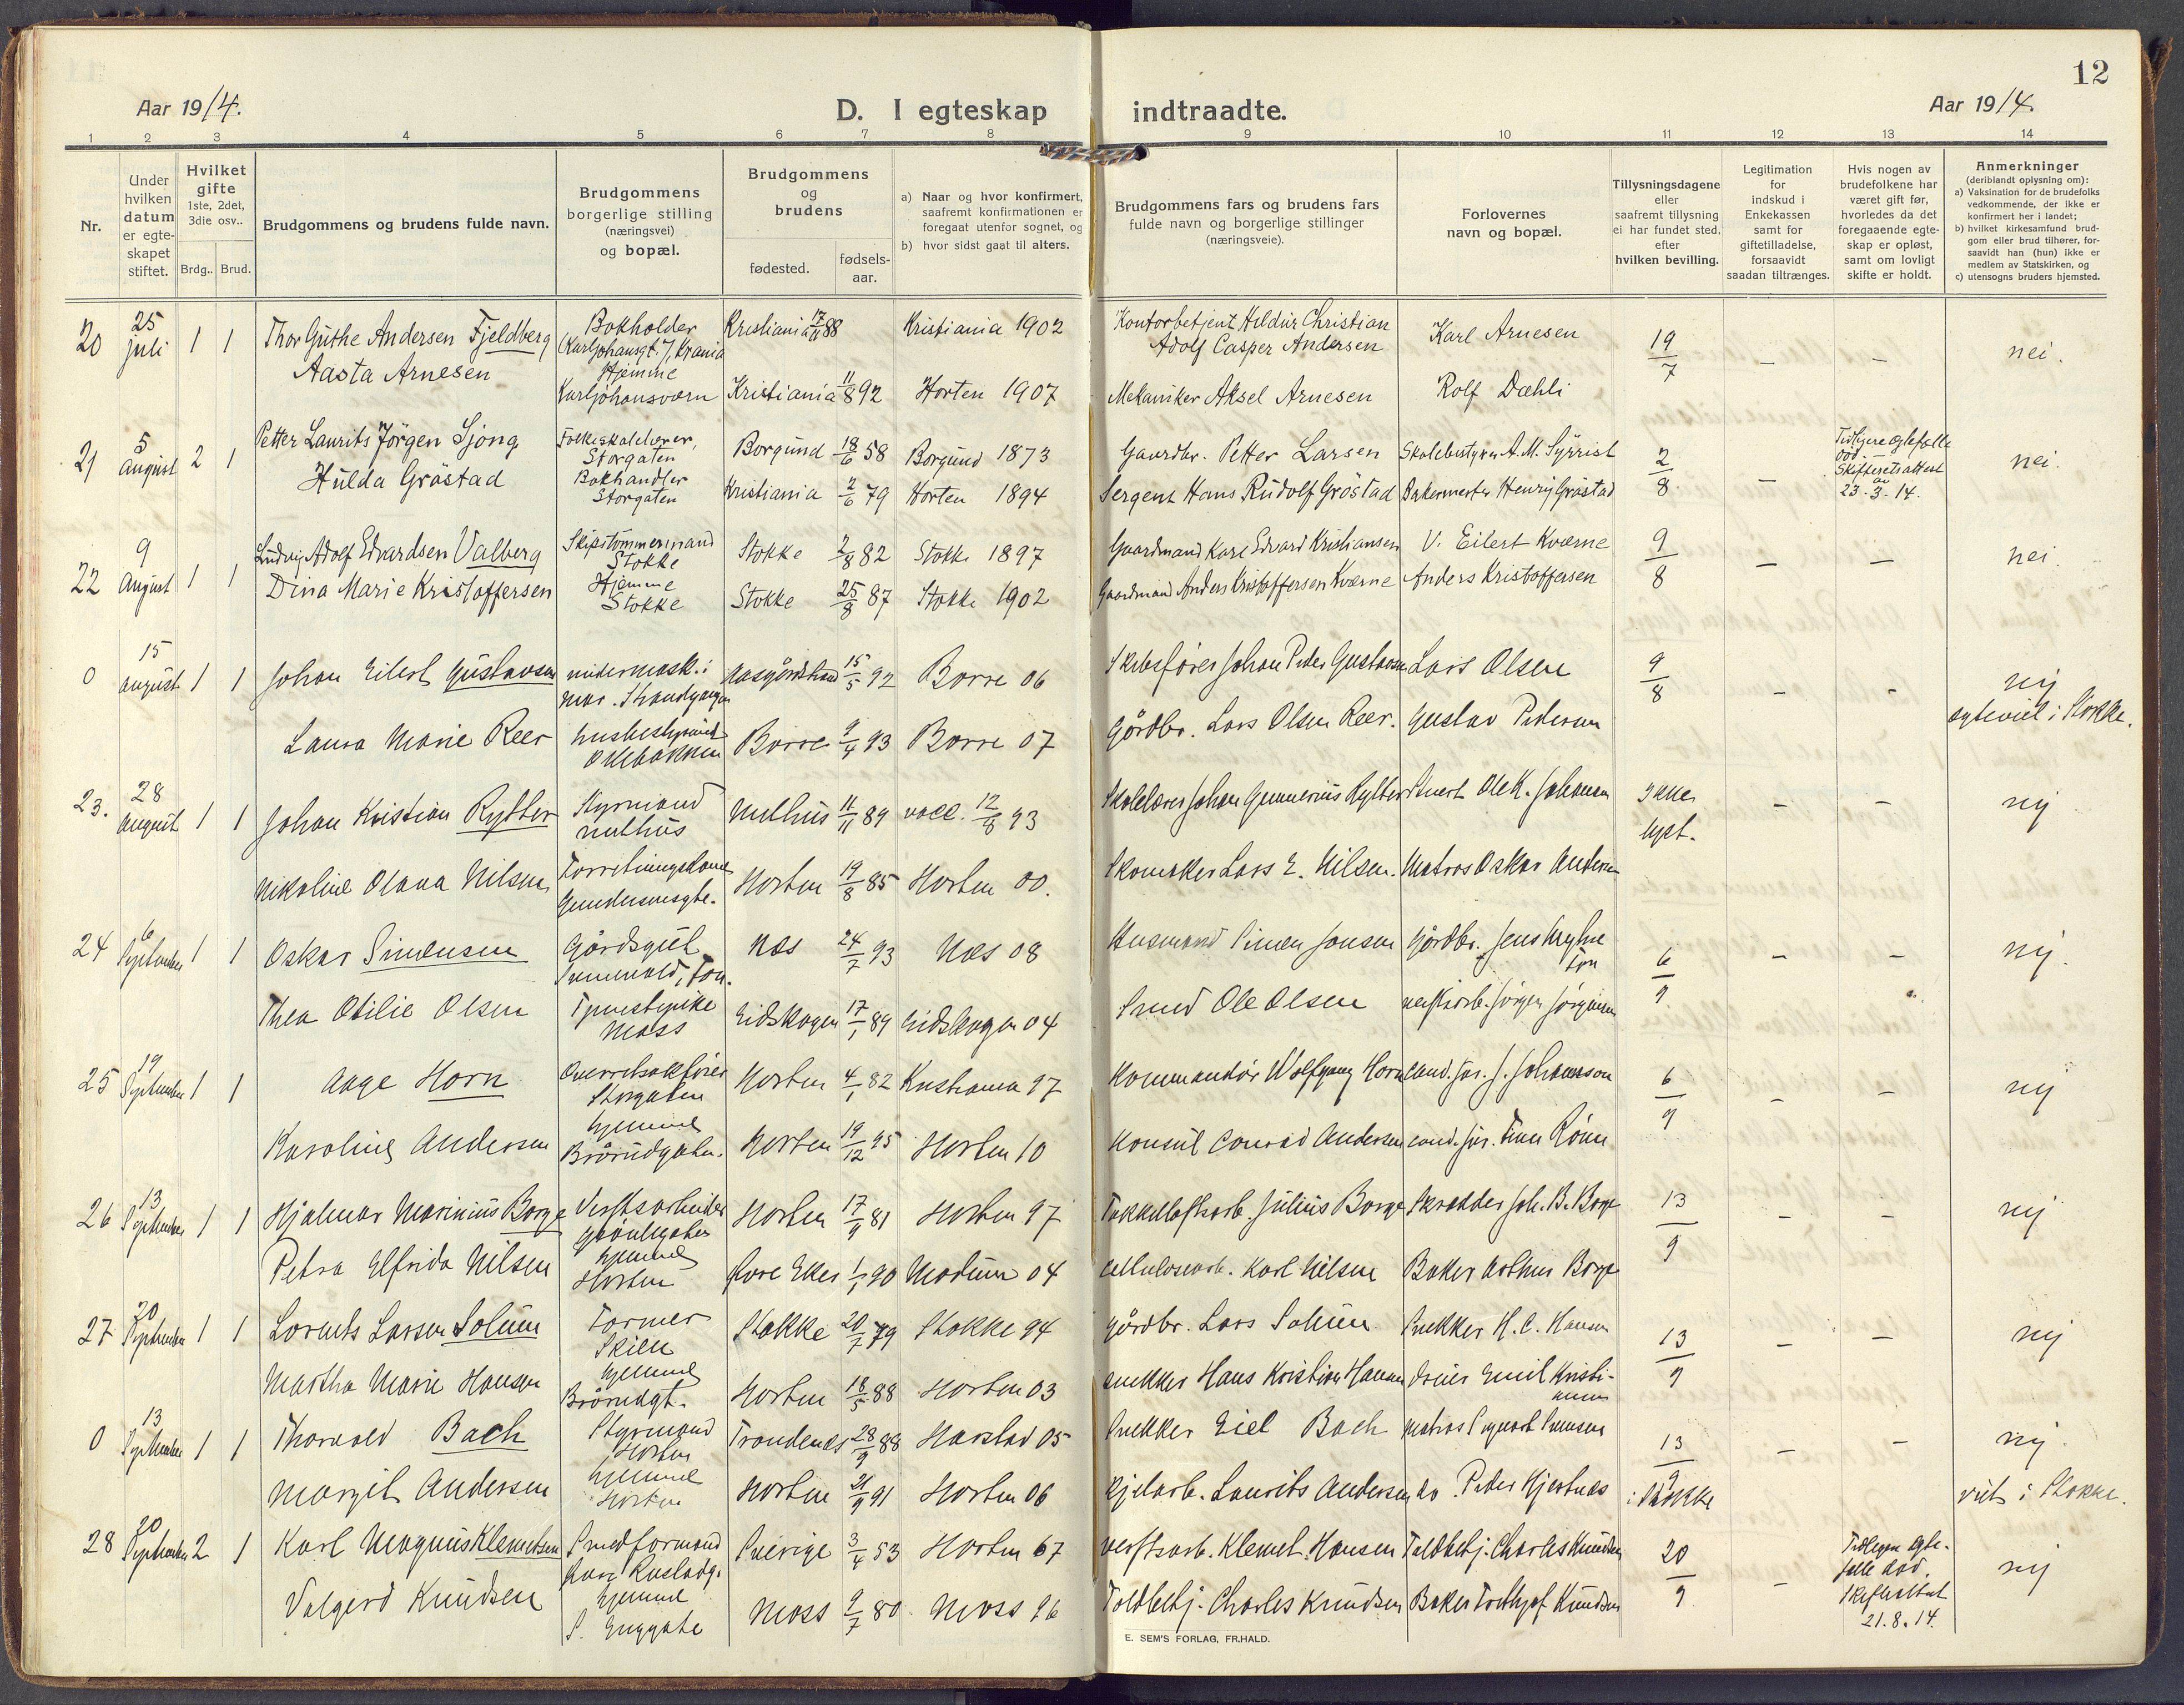 12
Aar 1914.
D. I egteskap indtraadte.
Aar 1914.
1 2 3 4 5 6 7 8 9 10 11 12 13 14
Nr.
Under hvilken datum er egteskapet stiftet.
Hvilket gifte 1ste, 2det, 3die osv..
Brdg.. Brud.
Brudgommens og brudens fulde navn.
Brudgommens borgerlige stilling (næringsvei) og bopæl.
Brudgommens og brudens
fødested. fødsels-aar.
a) Naar og hvor konfirmert, saafremt konfirmationen er foregaat utenfor sognet, og
b) hvor sidst gaat til alters.
Brudgommens fars og brudens fars fulde navn og borgerlige stillinger (næringsveie).
Forlovernes navn og bopæl.
Tillysningsdagene eller saafremt tillysning ei har fundet sted, efter hvilken bevilling.
Legitimation for indskud i Enkekassen samt for giftetilladelse, forsaavidt saadan tiltrænges.
Hvis nogen av brudefolkene har været gift før, hvorledes da det foregaaende egteskap er opløst, samt om lovligt skifte er holdt.
Anmerkninger (deriblandt oplysning om):
a) Vaksination for de brudefolks vedkommende, der ikke er konfirmert her i landet;
b) hvilket kirkesamfund brudgom eller brud tilhører, forsaavidt han (hun) ikke er medlem av Statskirken, og
c) utensogns bruders hjemsted.
20 25 juli 1 1 Thor Guthe Andersen Fjeldberg Bokholder Karljohansgt. 7, Krania Kristiania 17/11 88 Kristiania 1902 Kontorbetjent Hildur Christian Adolf Casper Andersen Karl Arnesen 19/7 – – nei.
Aasta Arnesen Hjemme Karljohansværn Kristiania 11/8 92 Horten 1907 Mekaniker Aksel Arnesen Rolf Dæhli
21 5 august 2 1 Petter Laurits Jørgen Sjong Folkeskolelærer, Storgaten Borgund 18/6 58 Borgund 1873 Gaardbr. Petter Larsen Skolebestyrer A. M. Syrrist 2/8 – Tidligere ægtefælle død. – Skifteretsattest av 23.3.14. nei.
Hulda Gröstad Bokhandler Storgaten Kristiania 2/6 79 Horten 1894 Sergent Hans Rudolf Gröstad Bakermester Henry Gröstad
22 9 August 1 1 Ludvig Adolf Edvardsen Valberg Skipstømmermand Stokke Stokke 2/8 82 Stokke 1897 Gaardmand Karl Edvard Kristiansen V. Eilert Kværne 9/8 – – nei
Dina Marie Kristoffersen Hjemme Stokke Stokke 25/8 87 Stokke 1902 Gaardmand Anders Kristoffersen Kværne Anders Kristoffersen
0 15 august 1 1 Johan Eilert Gustavsen undermask. i mar. Strandgangen Aasgårdstrand 15/5 92 Borre 06 Skibsfører Johan Peder Gustavsen Lars Olsen 9/8 – – nej
Laura Marie Reer husbestyrerinde Borre 9/4 93 Borre 07 Gårdbr. Lars Olsen Reer. Gustav Pedersen egteviet i Stokke.
23. 28 august 1 1 Johan Kristian Rytter Styrmand Melhus 11/11 89 vacc. 12/8 93 Skolelærer Johan Gunnerius Rytter Ole K. Johansen lyst. – – nej
Nikoline Olava Nilsen Gundersensgte. Horten 19/8 85 Horten 00. Skomaker Lars E. Nilsen. Matros Oskar Andersen
24 6 September 1 1 Oskar Simensen Gårdsgut Næs 24/7 93 Næs 08 Husmand Simen Jonsen Gårdbr. Jens 6/9 – – nej.
Thea Otilie Olsen Tjenestepike Moss Eidskogen 17/1 89 Eidskogen 04 Smed Ole Olsen Jørgen Jørgensen
25 19 September 1 1 Aage Horn Overretssakfører Storgaten Horten 4/1 82 Kristiania 97 Kommandør Wolfgang Horn cand. jur. J. Johannson 6/9 – – nej
Karoline Andersen hjemme Brårudgaten. Horten 19/12 95 Horten 10 Konsul Conrad Andersen cand. jur. Finn Rönn
26 13 September 1 1 Hjalmar Marinius Borge Verftsarbeider Horten 17/9 81 Horten 97 Julius Borge Skrædder Joh. B. Borge 13/9 – – nej
Petra Elfrida Nilsen hjemme Horten Øvre Eker 1/1 90 Modum 04 Cellulosearb. Karl Nilsen Baker Arthur Borge
27 20 September 1 1 Lorents Larsen Solum Former Skien Stokke 20/7 79 Stokke 94 Gårdbr. Lars Solum Snekker H. C. Hansen 13/9 – – nej
Martha Marie Hansen hjemme Brårudgt. Horten 18/5 88 Horten 03 Snekker Hans Kristian Hansen dreier Emil Kristiansen
0 13 September 1 1 Thorvald Bach Styrmand Horten Trondenæs 28/9 88 Harstad 05 Snekker Eiel Bach matros Sigvart Svensen 13/9 i Stokke – – nej.
Margit Andersen hjemme Horten Horten 21/9 91 Horten 06 Kjelarb. Laurits Andersen do Peder Hjertnæs viet i Stokke.
28 20 September 2 1 Karl Magnus Klemetsen Smedformand Sverige 3/4 53 Horten 67 Verftsarb. Klemet Hansen Toldbetj. Charles Knudsen 20/9 – Tidligere ægtefælle død. Skifteattest 21.8.14. nej
Valgerd Knudsen hjemme S. Enggate Moss 9/7 80 Moss 96 Toldbetj. Charles Knudsen Baker Fridtjof Knudsen
E. SEM'S FORLAG, FR.HALD.